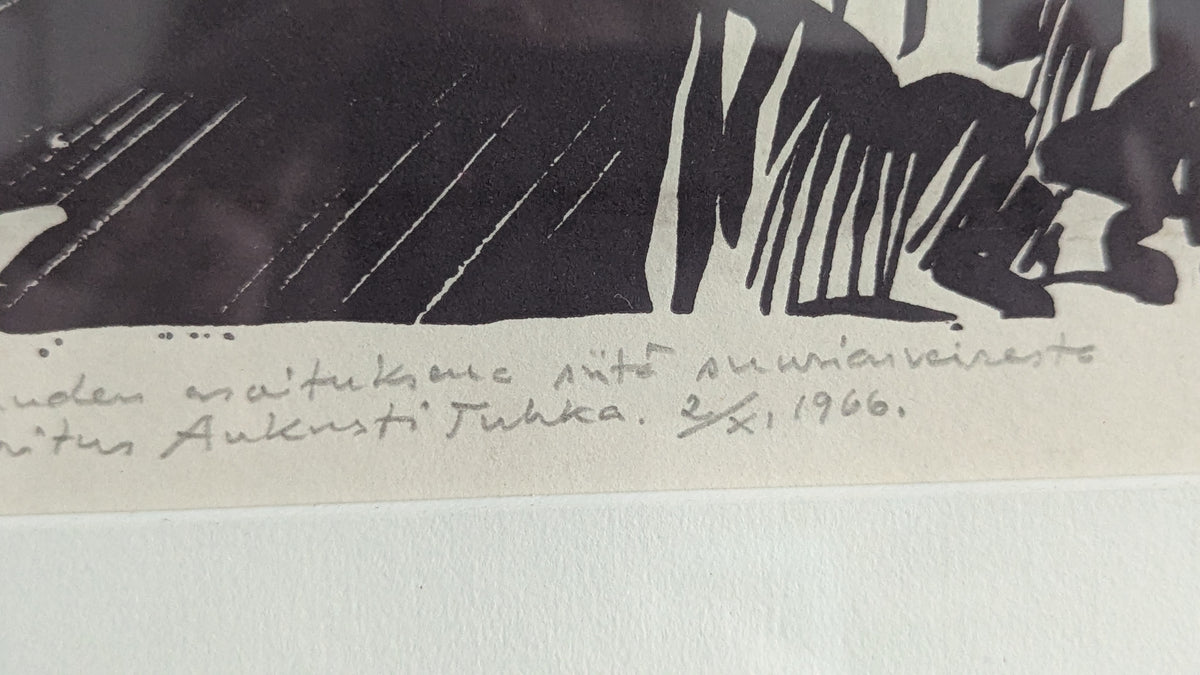 uden osoituksena siitä suuriarvoisesta
oitus Aukusti Tuhka. 2/X, 1966.